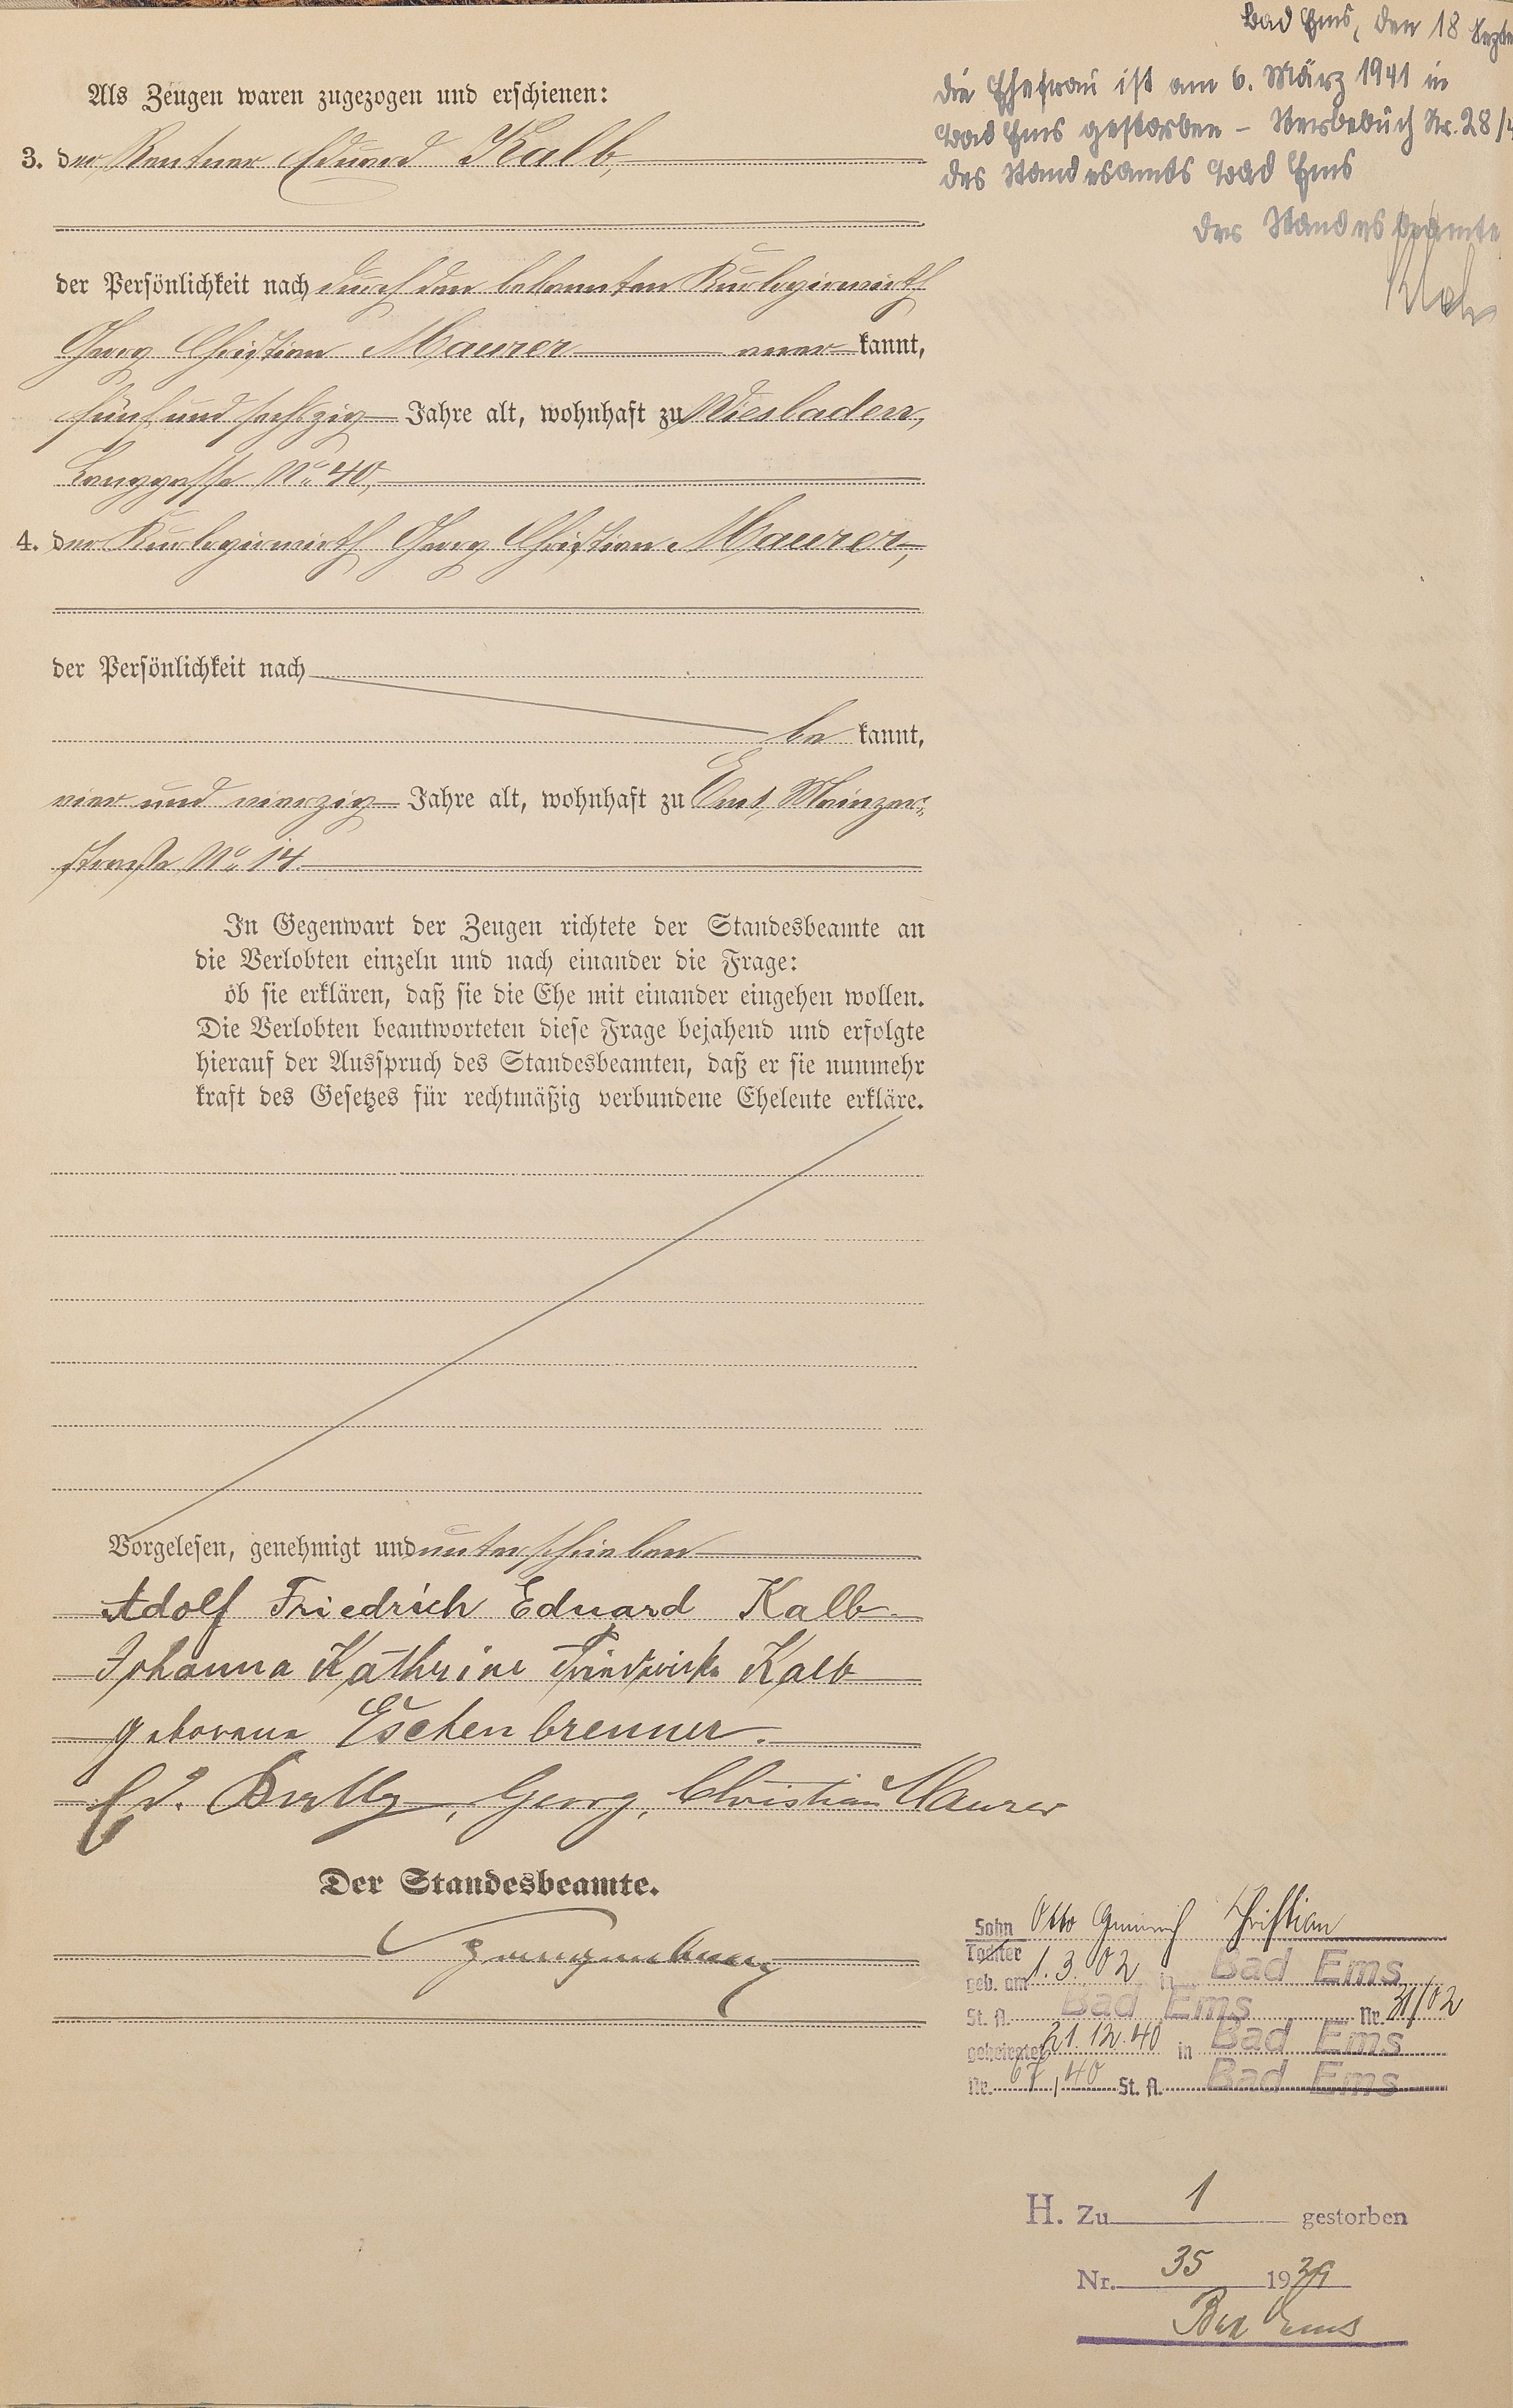 Als Zeugen waren zugezogen und erschienen:
3. der Rentner Eduard Kalb,
der Persönlichkeit nach durch den bekannten Kurlogirwirth
Georg Christian Maurer aner kannt,
fünf und sechszig Jahre alt, wohnhaft zu Wiesbaden,
Langgasse No. 40,
4. der Kurlogirwirth Georg Christian Maurer,
der Persönlichkeit nach
be kannt,
vier und vierzig Jahre alt, wohnhaft zu Ems, Mainzer-
strasse No. 14.
In Gegenwart der Zeugen richtete der Standesbeamte an
die Verlobten einzeln und nach einander die Frage:
ob sie erklären, daß sie die Ehe mit einander eingehen wollen.
Die Verlobten beantworteten diese Frage bejahend und erfolgte
hierauf der Ausspruch des Standesbeamten, daß er sie nunmehr
kraft des Gesetzes für rechtmäßig verbundene Eheleute erkläre.
Vorgelesen, genehmigt und unterschrieben
Adolf Friedrich Eduard Kalb
Johanna Kathrine Friedericke Kalb
geborene Eschenbrenner.
Ed. Kalb, Georg, Christian Maurer
Der Standesbeamte.
Bad Ems, den 18
Die Ehefrau ist am 6. März 1941 in
Bad Ems gestorben – Sterbebuch Nr. 28/4
des Standesamts Bad Ems
Der Standesbeamte
Sohn Otto Heinrich Christian
Tochter
geb. am 1. 3. 02 in Bad Ems
St. A. Bad Ems Nr. 31/02
geheiratet 21. 12. 40 in Bad Ems
Nr. 67 / 40 St. A. Bad Ems
H. Zu 1 gestorben
Nr. 35 1939
Bad Ems